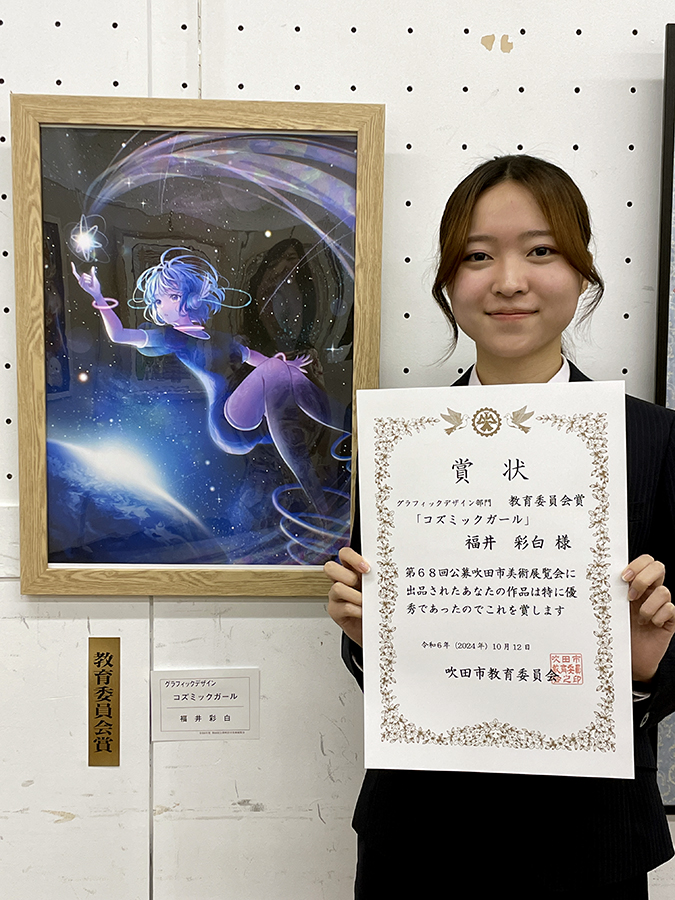 賞状
グラフィックデザイン部門 教育委員会賞
「コズミックガール」
福井 彩白 様
第68回公募吹田市美術展覧会に
出品されたあなたの作品は特に優
秀であったのでこれを賞します
令和6年(2024年)10月12日
吹田市教育委員会
教育委員会賞
グラフィックデザイン
コズミックガール
福井 彩白